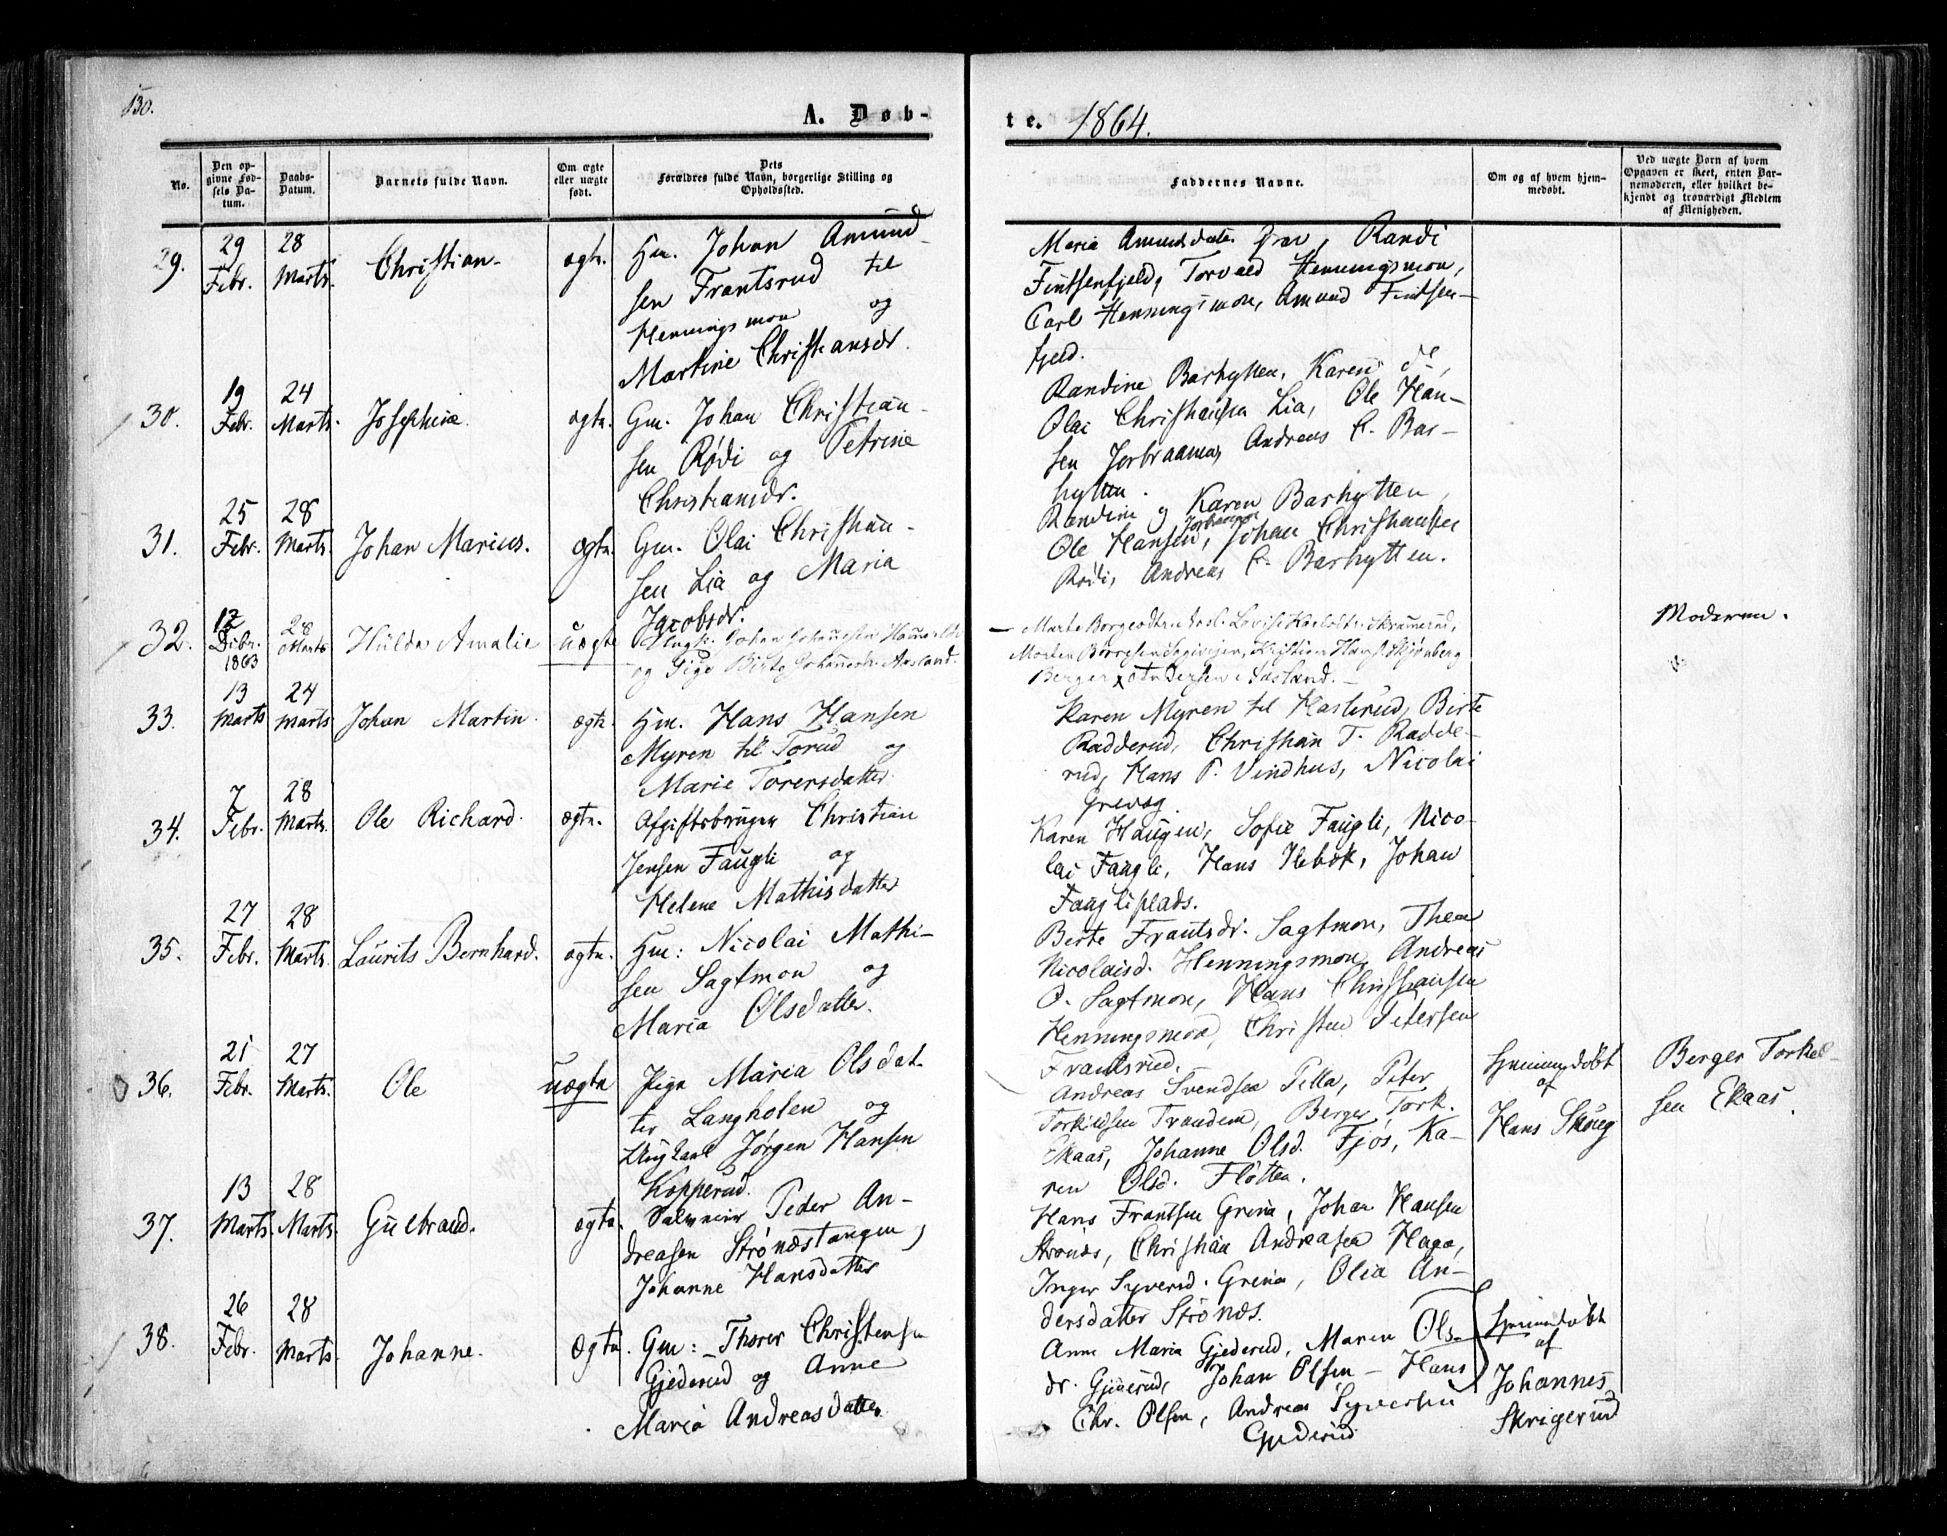 130.
A. Døb-
te. 1864.
No.
Den op-
givne Fød-
sels Da-
tum.
Daabs-
Datum.
Barnets fulde Navn.
Om ægte
eller uægte
født.
Dets
Forældres fulde Navn, borgerlige Stilling og
Opholdssted.
Faddernes Navne.
Om og af hvem hjem-
medøbt.
Ved uægte Børn af hvem
Opgaven er skeet, enten Bar-
nemoderen, eller hvilket be-
kjendt og troværdigt Medlem
af Menigheden.
29.
29
Febr.
28
Marts.
Christian
ægte.
Hm. Johan Amund-
sen Frantsrud til
Henningsmon og
Martine Christiansdr.
Maria Amundsdatter, Randi
Findsenfjeld, Torvald Henningsmon,
Carl Henningsmon, Amund Findsen-
fjeld.
30.
19
Febr.
24
Marts.
Josephine.
ægte.
Gm. Johan Christian-
sen Rødi og Petrine
Christiansdr.
Randine Barhytten, Karen do,
Olai Christiansen Lia, Ole Han-
sen Jorbraaman, Andreas C. Bar-
hytten.
31.
25
Febr.
28
Marts.
Johan Marius.
ægte.
Gm. Olai Christian-
sen Lia og Maria
Jacobsdr.
Randine og Karen Barhytten,
Ole Hansen, Johan Christiansen
Rødi, Andreas C. Barhytten.
32.
12
Dcbr.
1863
28
Marts
Hulda Amalie
uægte
Ungk. Johan Johannesen
og Pige Birte Johannesdr. Aasland.
Marte Borgersdtr.
Morten Børresen Sagvejen, Kristian Hans. Skjønberg
Berger Andersen Aasland.
Moderen.
33.
13
Marts
24
Marts
Johan Martin.
ægte.
Hm. Hans Hansen
Myren til Torud og
Marie Torersdatter.
Karen Myren til Hasterud, Birte
Radderud, Christian T. Radde-
rud, Hans P. Vindhus, Nicolai
Grevog.
34.
7
Febr.
28
Marts.
Ole Richard.
ægte.
Afgiftsbruger Christian
Jensen Faugli og
Helene Mathisdatter
Karen Haugen, Sofie Faugli, Nico-
lai Faugli, Hans Ilebæk, Johan
Faugliplads.
35.
27
Febr.
28
Marts.
Laurits Bernhard.
ægte.
Hm: Nicolai Mathi-
sen Sagtmon og
Maria Olsdatter.
Birte Frantsdr. Sagtmon, Thea
Nicolaisd. Henningsmon, Andreas
P. Sagtmon, Hans Christiansen
Henningsmon, Christen Petersen
Frantsrud.
36.
21
Febr.
27
Marts.
Ole
uægte
Pige Maria Olsdat-
ter Langholen og
Ungkarl Jørgen Hansen
Kopperud.
Andreas Svendsen Tilla, Peter
Torkildsen Trandem, Berger Tork.
Ekaas, Johanne Olsd. Fjøs, Ka-
ren Olsd. Fløtten.
Hjemmedøbt
af
Hans Skoug
Berger Torkel-
sen Ekaas.
37.
13
Marts.
28
Marts.
Gulbrand.
ægte.
Peder An-
dreasen Strønæstangen,
Johanne Hansdatter
Hans Frantsen Grina, Johan Hansen
Strønæs, Christian Andreasen Haga,
Inger Syversd. Grina, Olia An-
dersdatter Strønæs.
38.
26
Febr.
28
Marts.
Johanne.
Ægte.
Gm: Thorer Christensen
Gjederud og Anne
Maria Andreasdatter.
Anne Maria Gjederud, Maren Ols-
dr. Gjederud, Johan Olsen – Hans
Chr. Olsen, Andreas Syversen
Gjederud
Hjemmedøbt
af
Johannes
Skrigerud